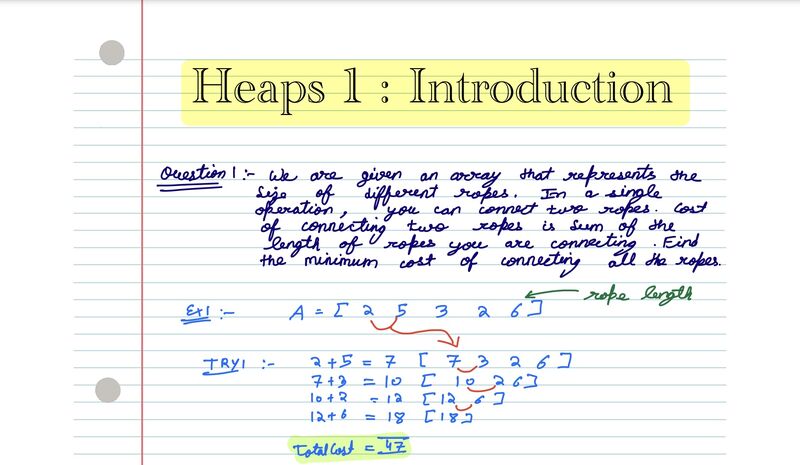 Heaps 1 : Introduction
Question 1 :- We are given an array that represents the
size of different ropes. In a single
operation, you can connect two ropes. Cost
of connecting two ropes is sum of the
length of ropes you are connecting. Find
the minimum cost of connecting all the ropes.
Ex1 :- A = [ 2 5 3 2 6 ] ← rope length
TRY1 :- 2+5 = 7 [ 7 3 2 6 ]
7+3 = 10 [ 10 2 6 ]
10+2 = 12 [ 12 6 ]
12+6 = 18 [ 18 ]
Total Cost = 47